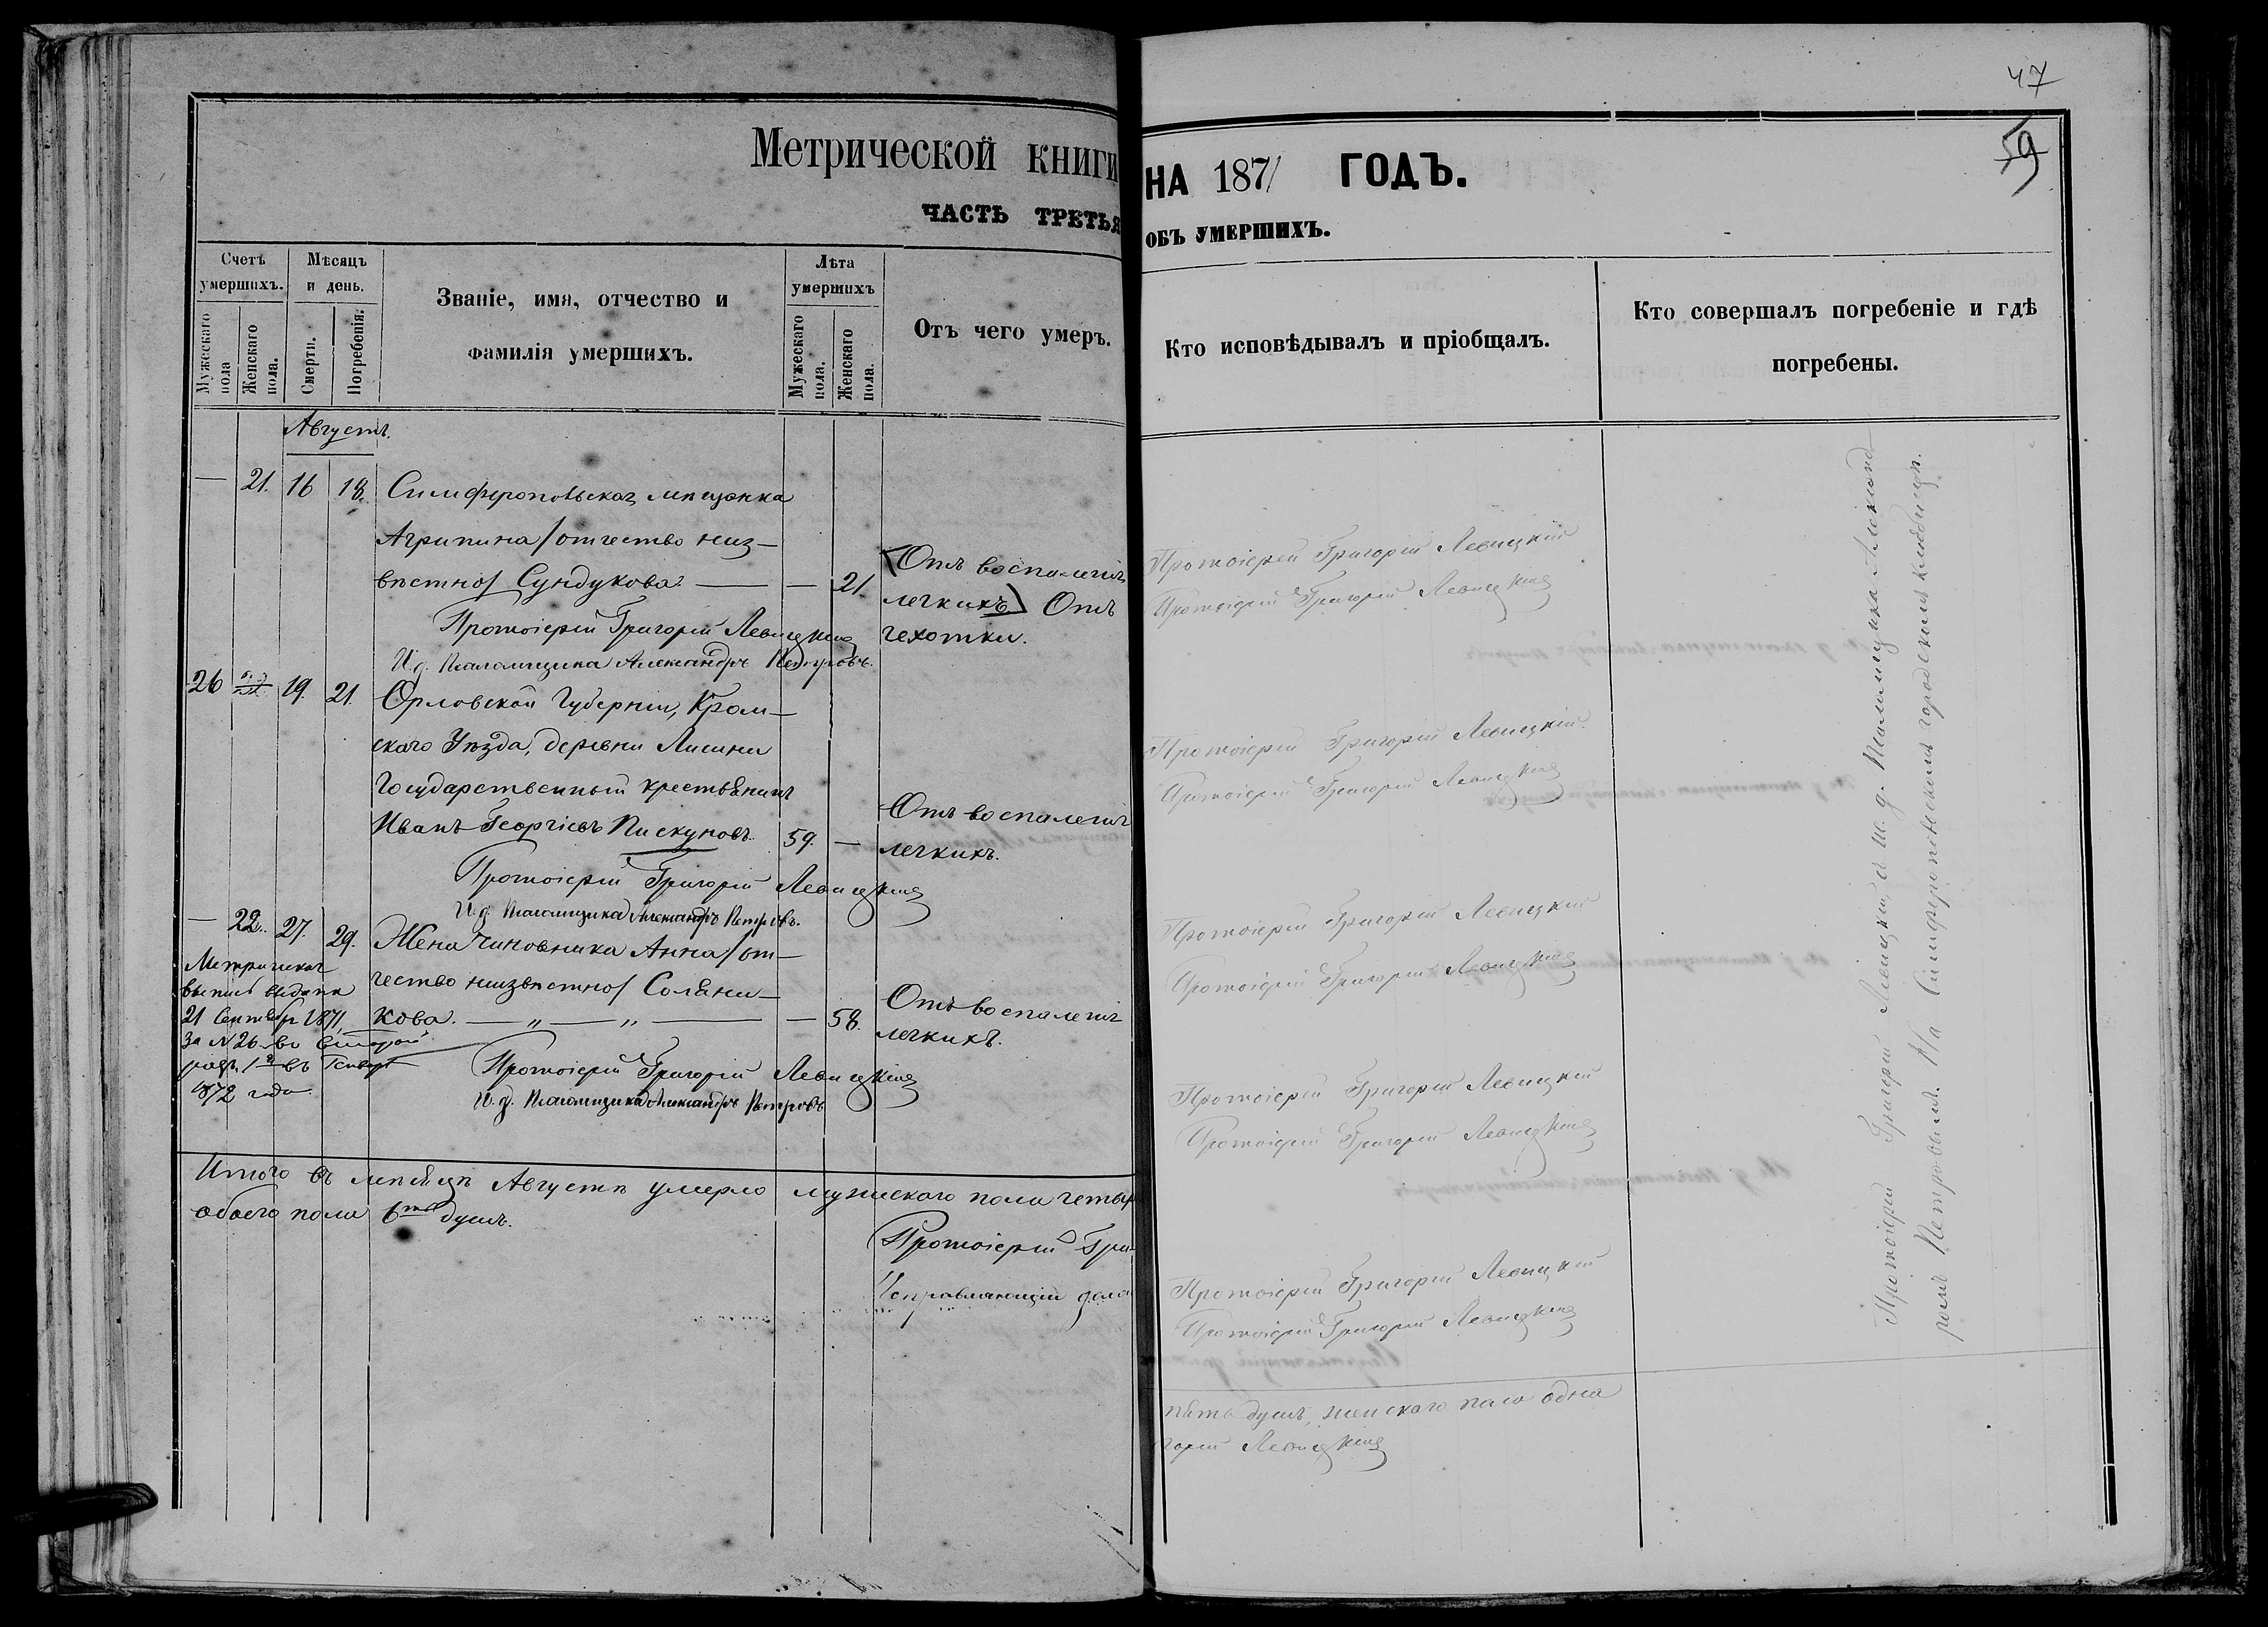 47
59
Метрической книги
НА 1871 ГОДЪ.
ЧАСТЬ ТРЕТЬЯ
ОБЪ УМЕРШИХЪ.
Счетъ умершихъ.
Мужескаго пола
Женскаго пола.
Мѣсяцъ и день.
Смерти.
Погребенія.
Званіе, имя, отчество и
фамилія умершихъ.
Лѣта умершихъ
Мужескаго пола.
Женскаго пола.
Отъ чего умеръ.
Кто исповѣдывалъ и пріобщалъ.
Кто совершалъ погребеніе и гдѣ
погребены.
Августъ.
— 21. 16 18. Симферопольская мѣщанка
Агрипина /отчество неиз-
вѣстно/ Сундукова. — — 21.
(Отъ воспаленія
легкихъ) Отъ
чехотки.
Протоіерей Григорій Левицкій
И. д. Псаломщика Александръ Петровъ.
26 22 19. 21. Орловской Губерніи, Кром-
скаго Уѣзда, деревни Лисины
Государственный крестьянинъ
Иванъ Георгіевъ Пискуновъ. 59. —
Отъ воспаленія
легкихъ.
Протоіерей Григорій Левицкій
И. д. Псаломщика Александръ Петровъ.
— 22. 27. 29. Жена Чиновника Анна /от-
чество неизвѣстно/ Соляни-
кова. — „ — „ — — 58.
Отъ воспаленія
легкихъ.
Метрическая
выпись выдана
21 Сентябр 1871,
за №26. во второй
разъ 1го въ Январѣ
1872 года.
Протоіерей Григорій Левицкій
И. д. Псаломщика Александръ Петровъ
Итого въ мѣсяцѣ Августѣ умерло мужескаго пола четыр
обоего пола 6ть душъ.
Протоіерей Гри-
Исправляющій долж
Протоіерей Григорій Левицкій
Протоіерей Григорій Левицкій
Протоіерей Григорій Левицкій.
Протоіерей Григорій Левицкій
Протоіерей Григорій Левицкій
Протоіерей Григорій Левицкій
Протоіерей Григорій Левицкій
Протоіерей Григорій Левицкій
Протоіерей Григорій Левицкій
Протоіерей Григорій Левицкій
пять душъ, женскаго пола одна
горій Левицкій
Протоіерей Григорій Левицкій, съ и. д. Псаломщика Александ-
ромъ Петровымъ. На Симферопольскомъ городскомъ кладбищѣ.